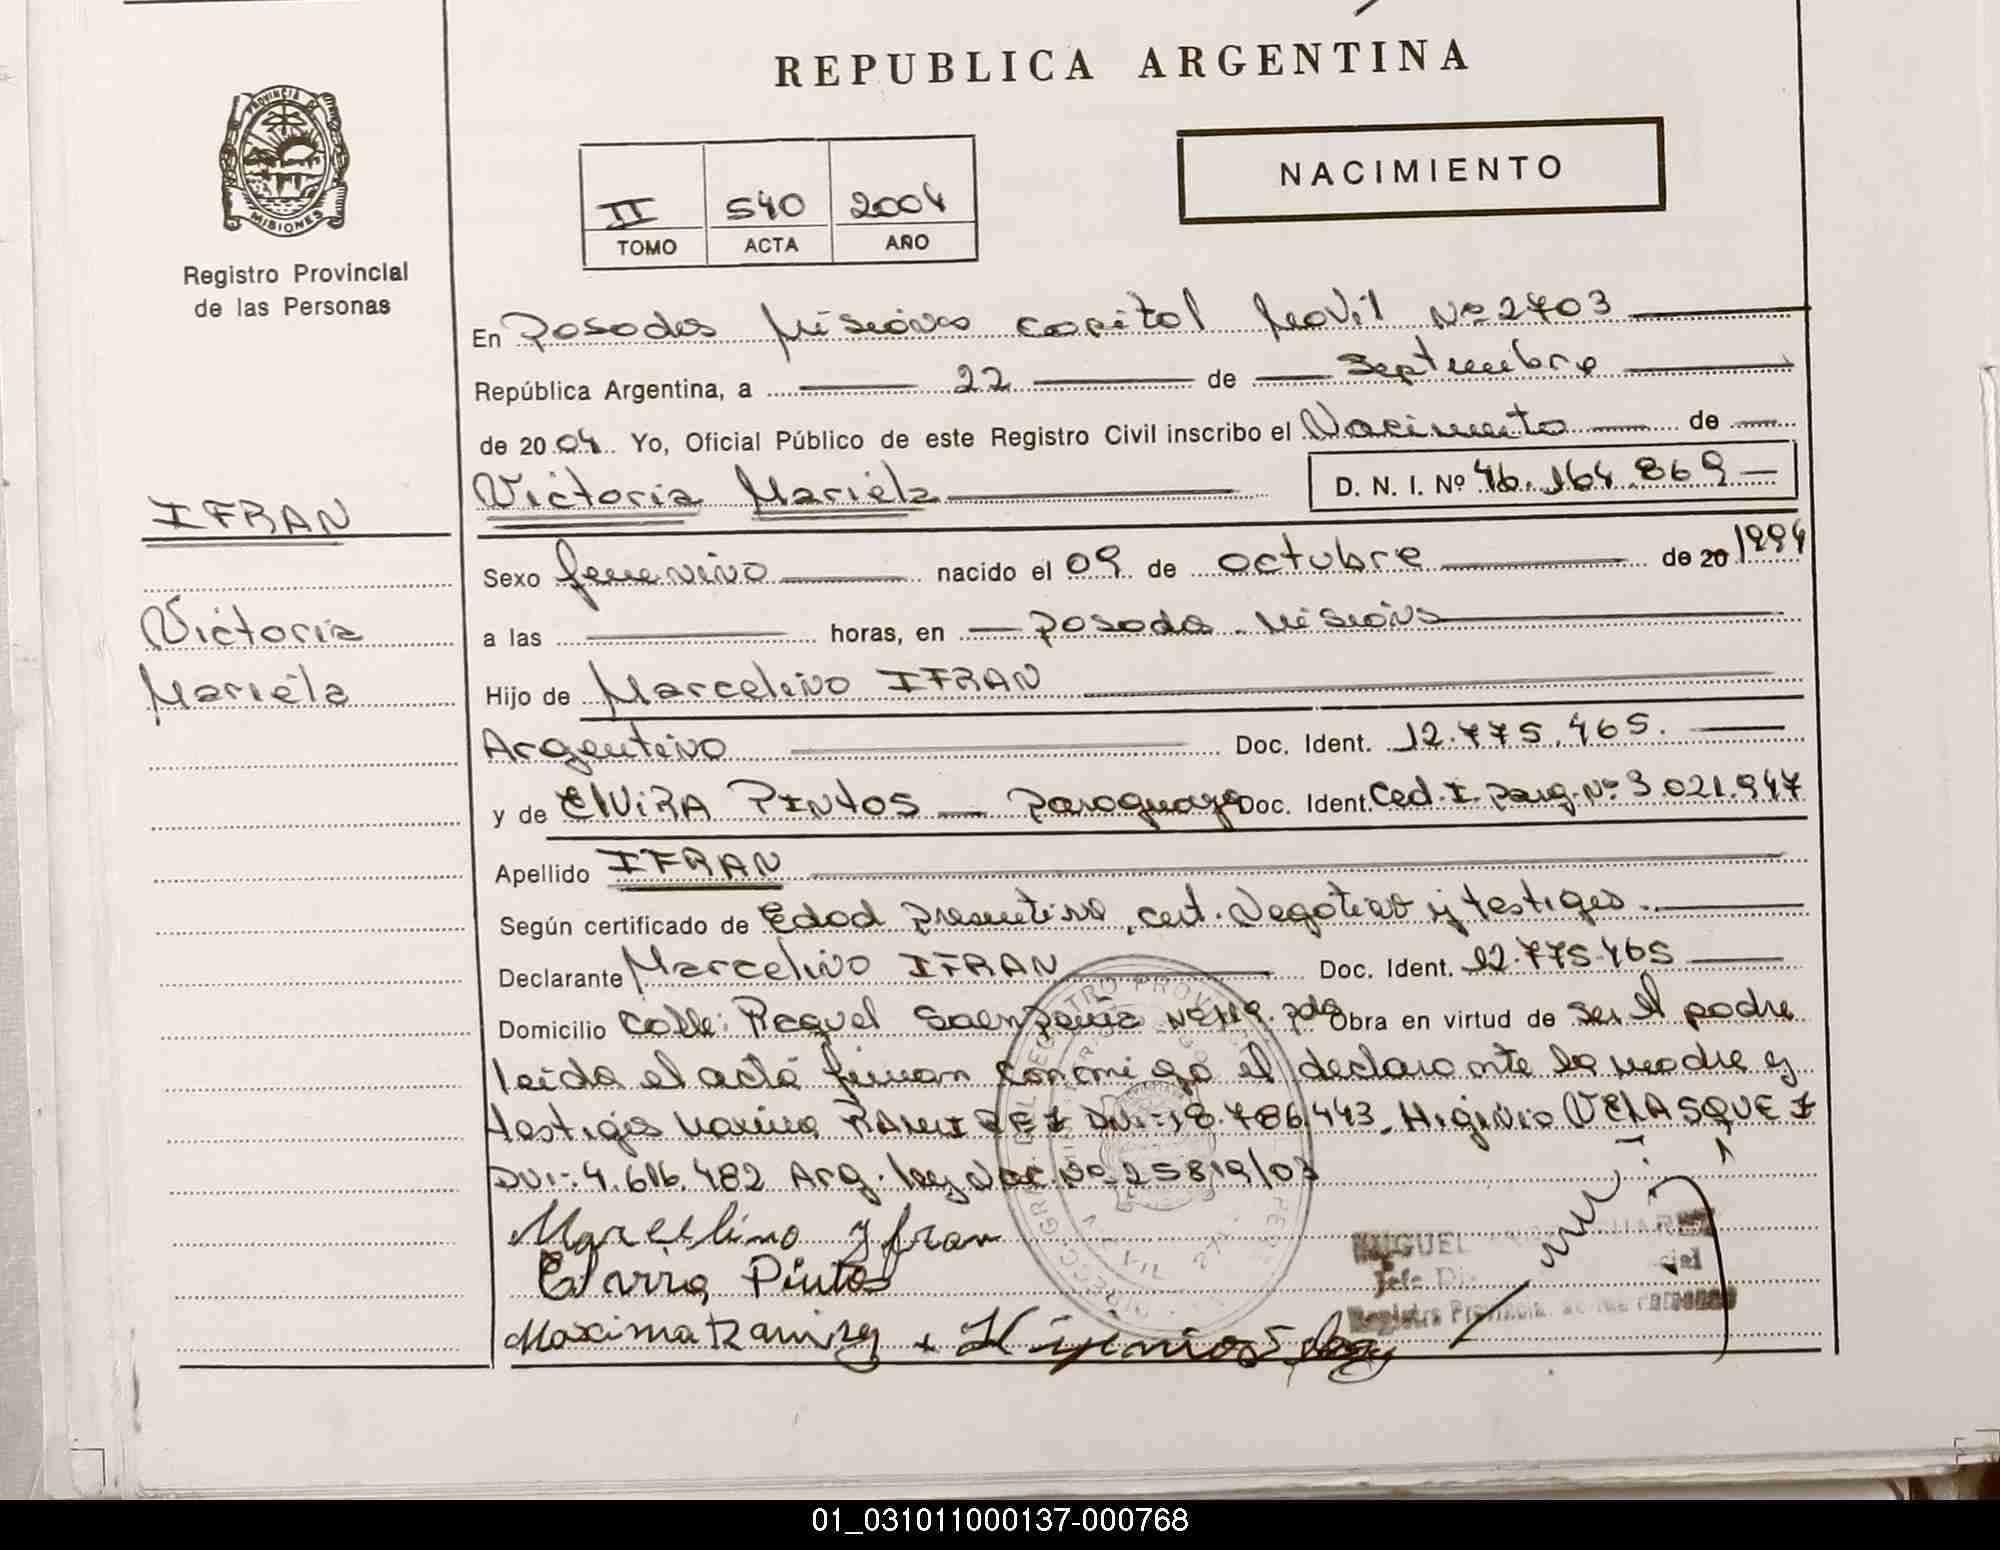 REPUBLICA ARGENTINA
PROVINCIA DE
MISIONES
Registro Provincial
de las Personas
NACIMIENTO
II 540 2004
TOMO ACTA AÑO
En Posadas Misiones capital Movil Nº 2703
República Argentina, a 22 de Septiembre
de 2004. Yo, Oficial Público de este Registro Civil inscribo el Nacimiento de
Victoria Mariela D. N. I. Nº 46.164.869
IFRAN
Victoria
Mariela
Sexo femenino nacido el 09 de octubre de 20 1994
a las horas, en Posadas Misiones
Hijo de Marcelino IFRAN
Argentino Doc. Ident. 12.775.465.
y de ElViRA PINtOS Paraguaya Doc. Ident. Ced. I. parg. Nº 3.021.947
Apellido IFRAN
Según certificado de Edad presuntiva, cert. Negativo y testigos.
Declarante Marcelino IFRAN Doc. Ident. 12.775.465
Domicilio Calle: Raquel Saenz peña Obra en virtud de ser el padre
leida el acta firman conmigo el declarante la madre y
testigos RAMIREZ DNI:-18.786.443. Higinio VELASQUEZ
DNI:-4.616.482 Arg. ley Nac. Nº 25819/03
Marcelino Yfran
Elvira Pintos
Maxima Ramirez
MIGUEL
Jefe
Registro Provincial de las Personas
01_031011000137-000768